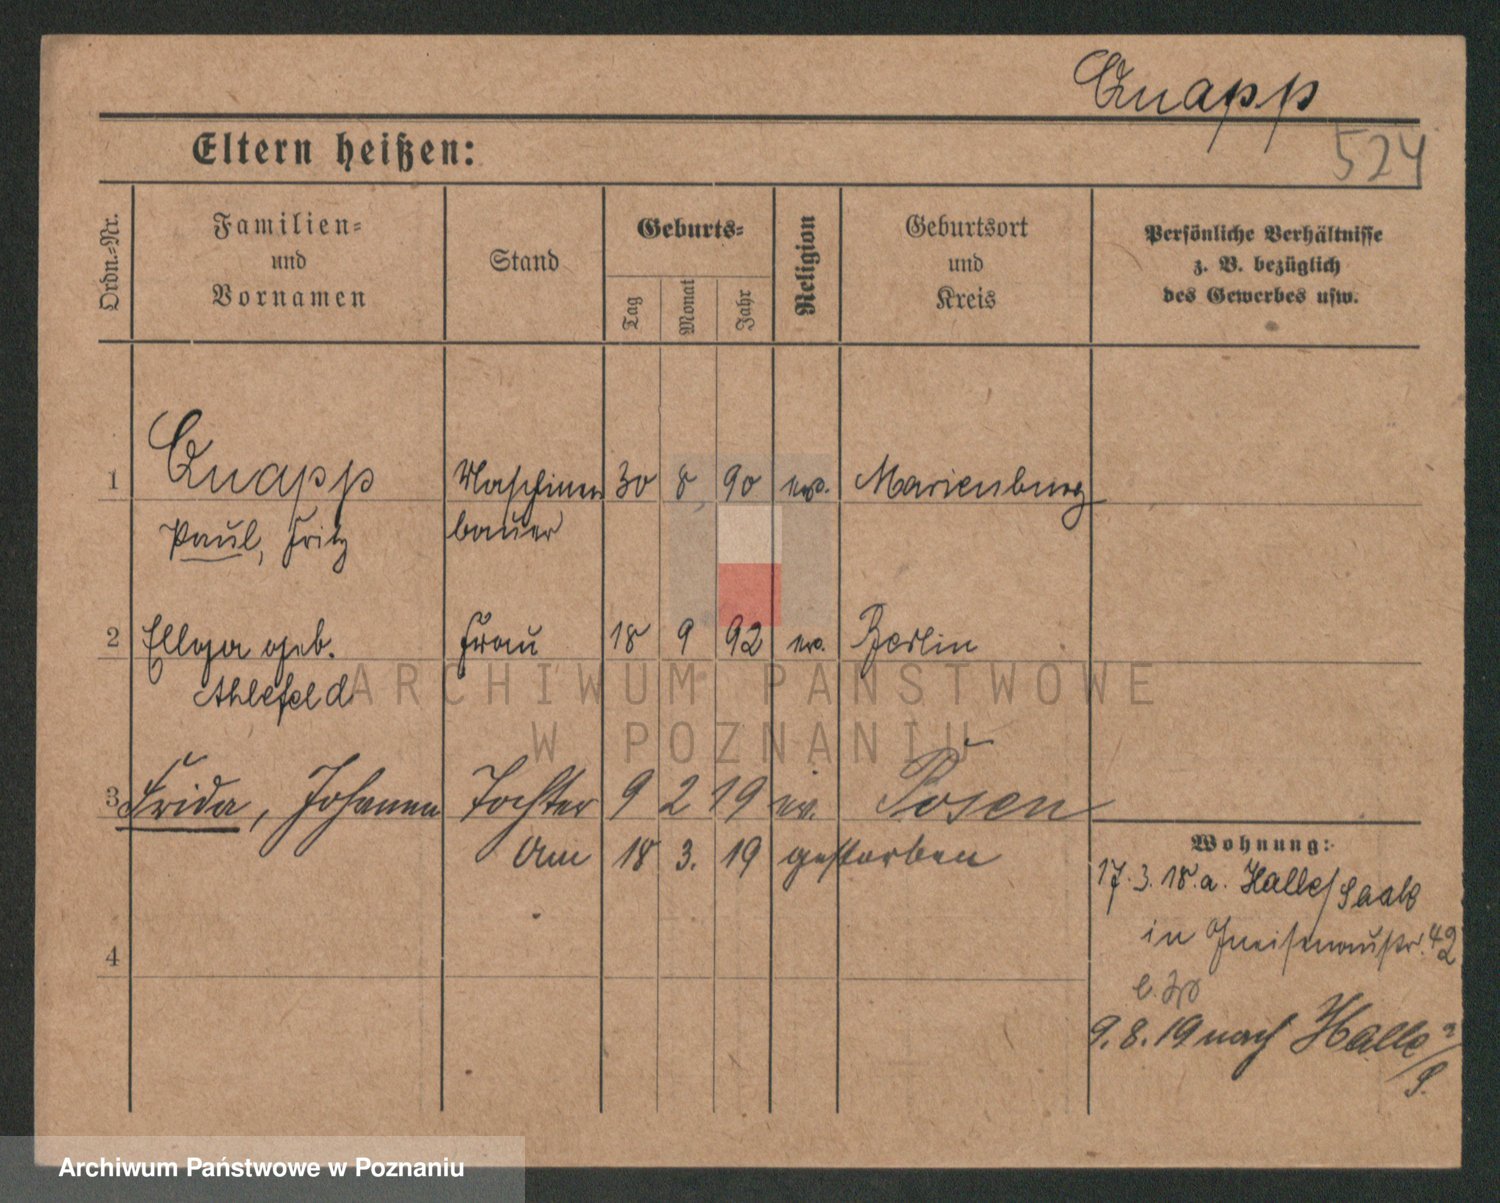 Quapp
524
Eltern heißen:
Ordn.-Nr.
Familien- und Vornamen
Stand
Geburts-
Tag
Monat
Jahr
Religion
Geburtsort und Kreis
Persönliche Verhältnisse
z. B. bezüglich
des Gewerbes usw.
1 Quapp Maschinen 30 8 90 ev. Marienburg
Paul, Fritz bauer
2 geb. Frau 18 9 92 ev. Berlin
Ahlefeld
3 Frida, Johanna Tochter 9 2 19 ev. Posen
Am 18 3. 19 gestorben
Wohnung:
17.3.18. a. Halle/Saale
in Gneisenaustr. 42
4
9.8.19 nach Halle a/S.
ARCHIWUM PAŃSTWOWE
W POZNANIU
Archiwum Państwowe w Poznaniu